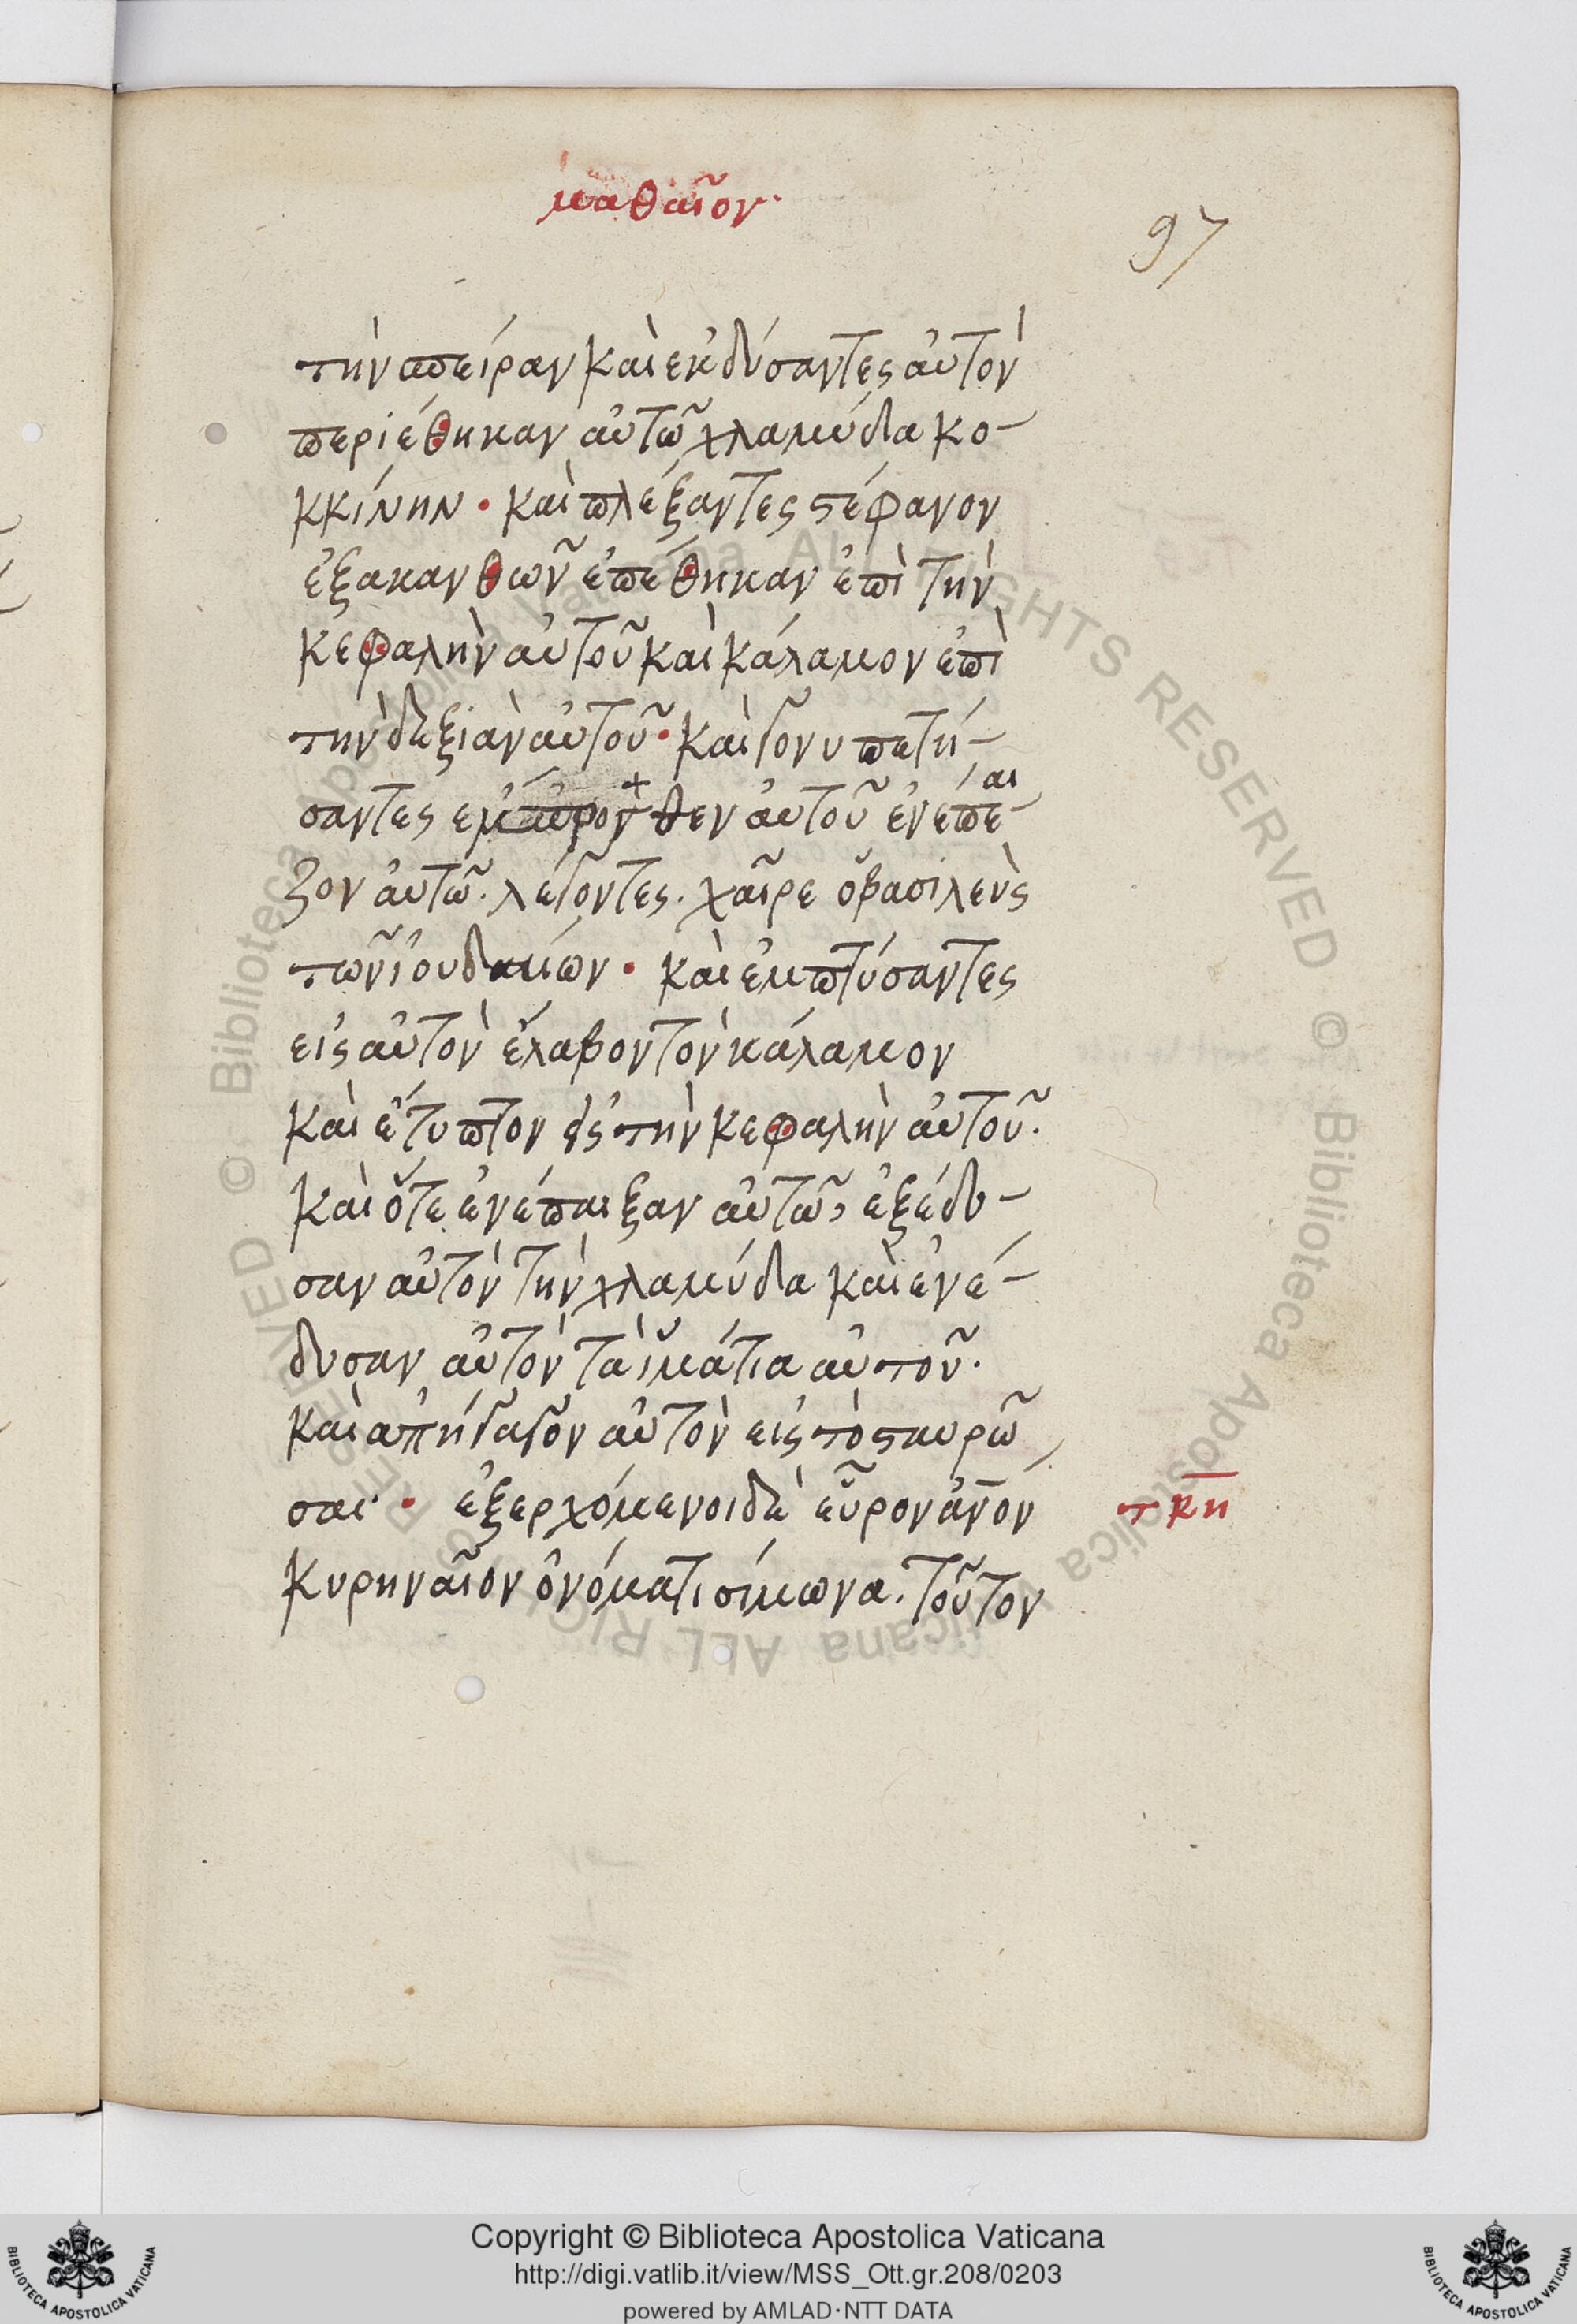 μαθαῖον·
97
τὴν σπείραν καὶ ἐκδύσαντες αὐτὸν
περιέθηκαν αὐτῶ χλαμύδα κο-
κκίνην · καὶ πλέξαντες στέφανον
ἐξ ακανθῶν ἐπέθηκαν ἐπὶ τὴν
κεφαλὴν αὐτοῦ καὶ κάλαμον ἐπὶ
τὴν δεξιὰν αὐτοῦ · καὶ γονυπετή-
σαντες ἔμπροσθεν αὐτοῦ ἐνέπαι-
ζον αὐτῶ · λέγοντες · χαῖρε ὁ βασιλεὺς
τῶν ἰουδαίων · καὶ ἐμπτύσαντες
εἰς αὐτὸν ἔλαβον τὸν κάλαμον
καὶ ἔτυπτον εἰς τὴν κεφαλὴν αὐτοῦ ·
καὶ ὅτε ἐνέπαιξαν αὐτῶ, ἐξέδυ-
σαν αὐτὸν τὴν χλαμύδα καὶ ἐνέ-
δυσαν αὐτὸν τὰ ἱμάτια αὐτοῦ ·
καὶ ἀπήγαγον αὐτὸν εἰς τὸ σταυρῶ
σαι · ἐξερχόμενοι δὲ εὗρον ἄνον
κυρηναῖον ὀνόματι σίμωνα · τοῦτον
τκη
Copyright © Biblioteca Apostolica Vaticana
http://digi.vatlib.it/view/MSS_Ott.gr.208/0203
powered by AMLAD·NTT DATA
BIBLIOTECA APOSTOLICA VATICANA
BIBLIOTECA APOSTOLICA VATICANA